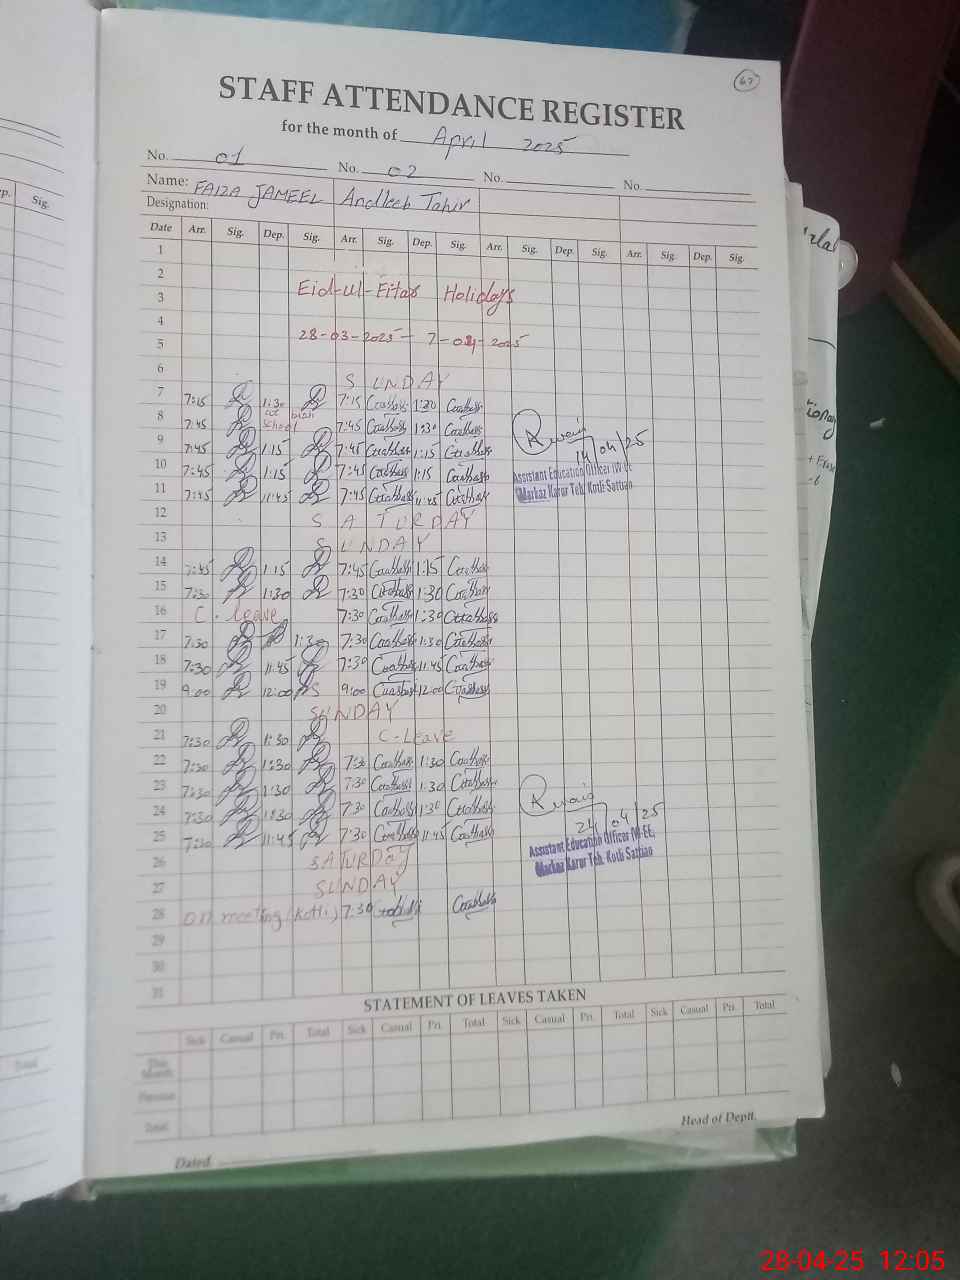 67
STAFF ATTENDANCE REGISTER
for the month of April 2025
No. 01 No. 02 No. No.
Name: FAIZA JAMEEL Andleeb Tahir
Designation:
p. Sig.
Date Arr. Sig. Dep. Sig. Arr. Sig. Dep. Sig. Arr. Sig. Dep. Sig. Arr. Sig. Dep. Sig.
1
2
3 Eid-ul-Fitar Holidays
4
5 28-03-2025 - 7-04-2025
6 SUNDAY
7 7:15 1:30 7:15 1:30
8 7:45 school 7:45 1:30
9 7:45 1:15 7:45 1:15
10 7:45 1:15 7:45 1:15
11 7:45 11:45 7:45 11:45
14/04/25
Assistant Education Officer (W-EE
Markaz Karur Teh. Kotli Sattian
12 SATURDAY
13 SUNDAY
14 7:45 1:15 7:45 1:15
15 7:30 1:30 7:30 1:30
16 C. leave 7:30 1:30
17 7:30 1:30 7:30 1:30
18 7:30 11:45 7:30 11:45
19 9:00 12:00 9:00 12:00
20 SUNDAY
21 7:30 1:30 C-Leave
22 7:30 1:30 7:30 1:30
23 7:30 1:30 7:30 1:30
24 7:30 1:30 7:30 1:30
25 7:30 11:45 7:30 11:45
24/04/25
Assistant Education Officer (W-EE,
Markaz Karur Teh. Kotli Sattian
26 SATURDAY
27 SUNDAY
28 on meeting (Kotli) 7:30
29
30
31
STATEMENT OF LEAVES TAKEN
Sick Casual Pri. Total Sick Casual Pri. Total Sick Casual Pri. Total Sick Casual Pri. Total
This Month
Previous
Total
Head of Deptt.
Dated
28-04-25 12:05